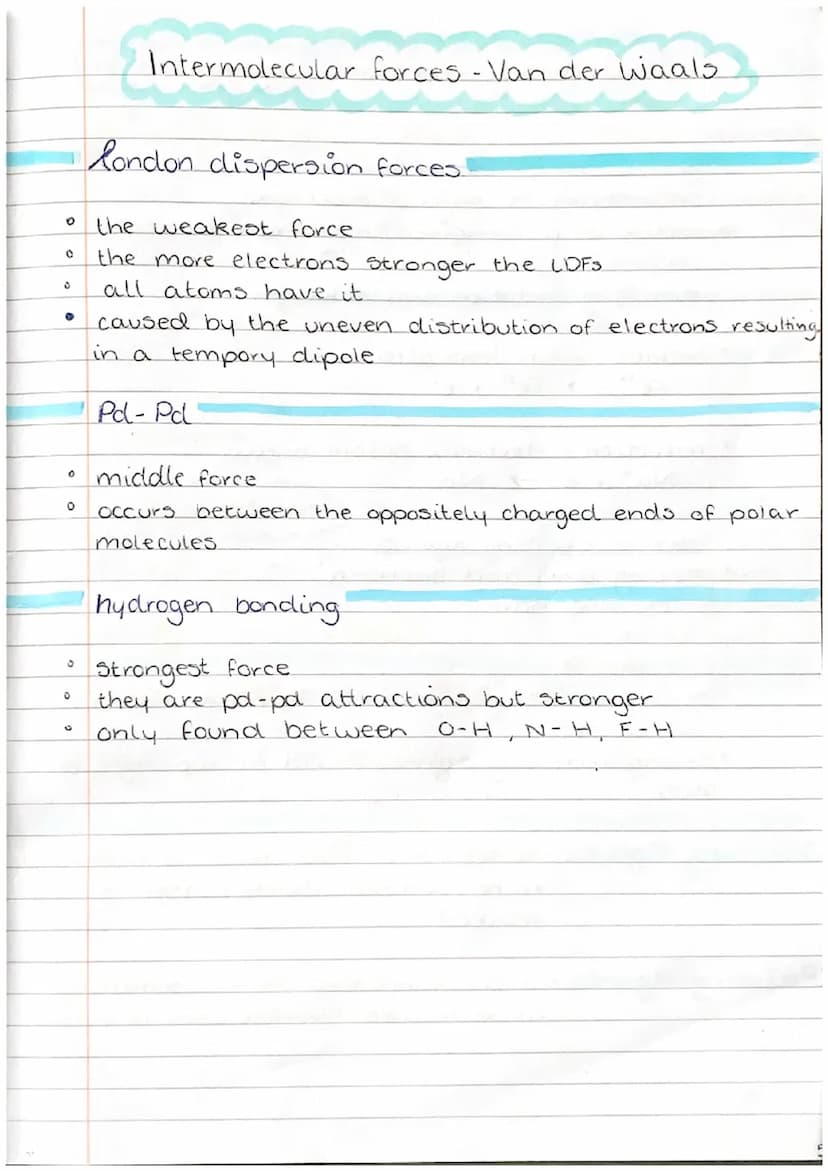 Intermolecular forces - Van der Waals
London dispersion forces
the weakest force
the more electrons stronger the LDFs
all atoms have it
caused by the uneven distribution of electrons resulting
in a tempory dipole
Pd - Pd
middle force
occurs between the oppositely charged ends of polar
molecules
hydrogen bonding
strongest force
they are pd-pd attractions but stronger
only found between O-H, N-H, F-H